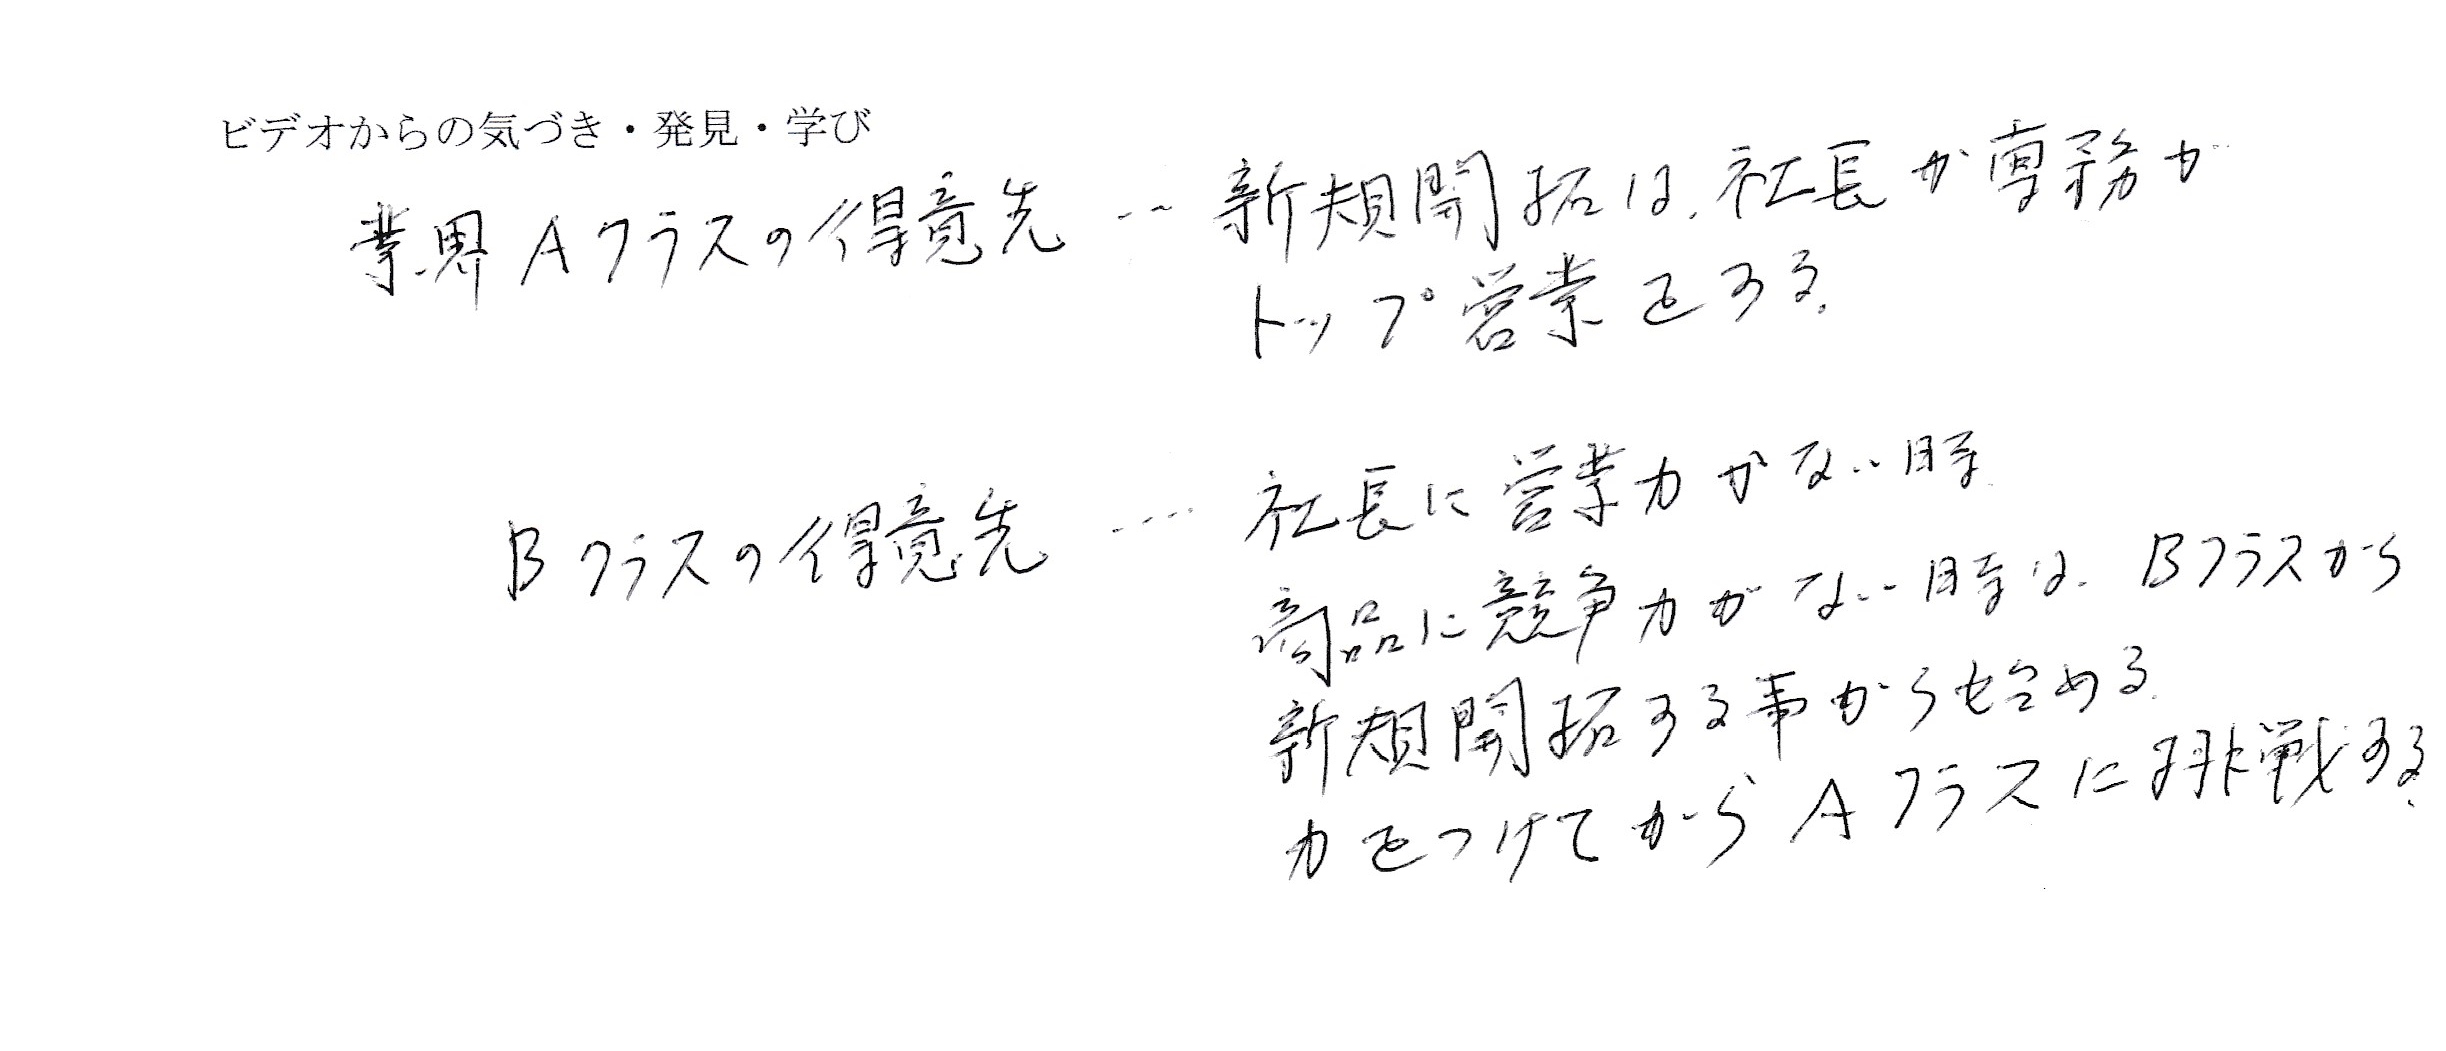 ビデオからの気づき・発見・学び
業界Aクラスの得意先 … 新規開拓は、社長か専務が
トップ営業をする。
Bクラスの得意先 …… 社長に営業力がない時
商品に競争力がない時は、Bクラスから
新規開拓する事から始める。
力をつけてからAクラスに挑戦する。